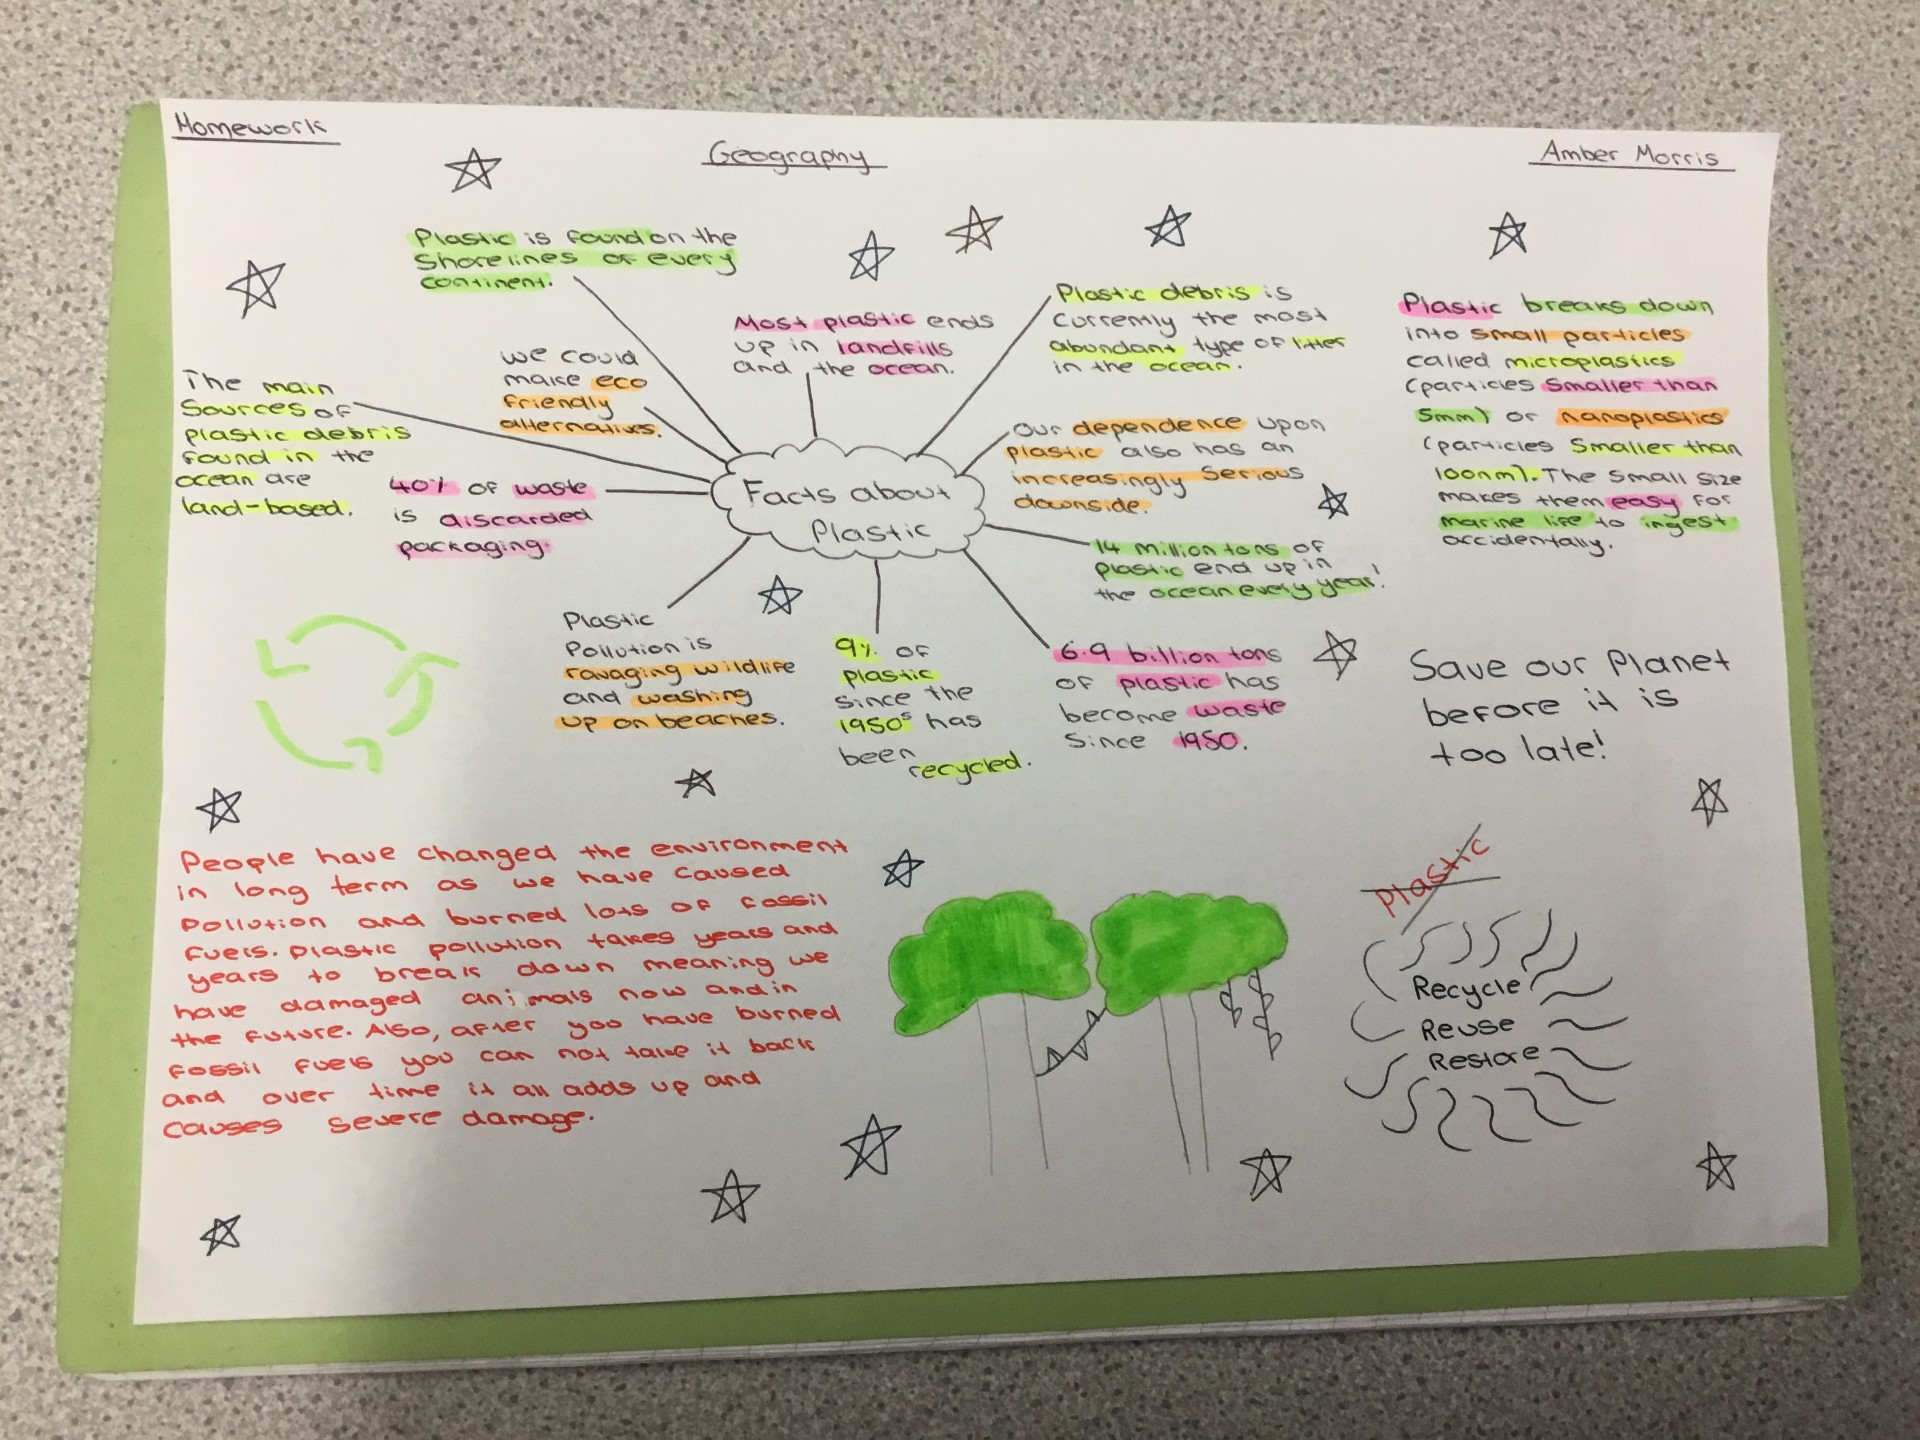 Homework
Geography
Amber Morris
Plastic is found on the
Shorelines of every
continent.
Most plastic ends
up in landfills
and the ocean.
Plastic debris is
Currently the most
abundant type of litter
in the ocean.
Plastic breaks down
into small particles
called microplastics
(particles smaller than
5mm) or nanoplastics
(particles smaller than
100nm). The small size
makes them easy for
marine life to ingest
accidentally.
we could
make eco
friendly
alternatives.
The main
Sources of
plastic debris
found in the
ocean are
land-based.
40% of waste
is discarded
packaging.
Facts about
Plastic
our dependence upon
plastic also has an
increasingly serious
downside.
14 million tons of
plastic end up in
the ocean every year!
Plastic
Pollution is
ravaging wildlife
and washing
up on beaches.
9% of
plastic
since the
1950s has
been
recycled.
6.9 billion tons
of plastic has
become waste
since 1950.
Save our Planet
before it is
too late!
People have changed the environment
in long term as we have caused
Pollution and burned lots of fossil
fuels. Plastic pollution takes years and
years to break down meaning we
have damaged animals now and in
the future. Also, after you have burned
fossil fuels you can not take it back
and over time it all adds up and
causes severe damage.
Plastic
Recycle
Reuse
Restore